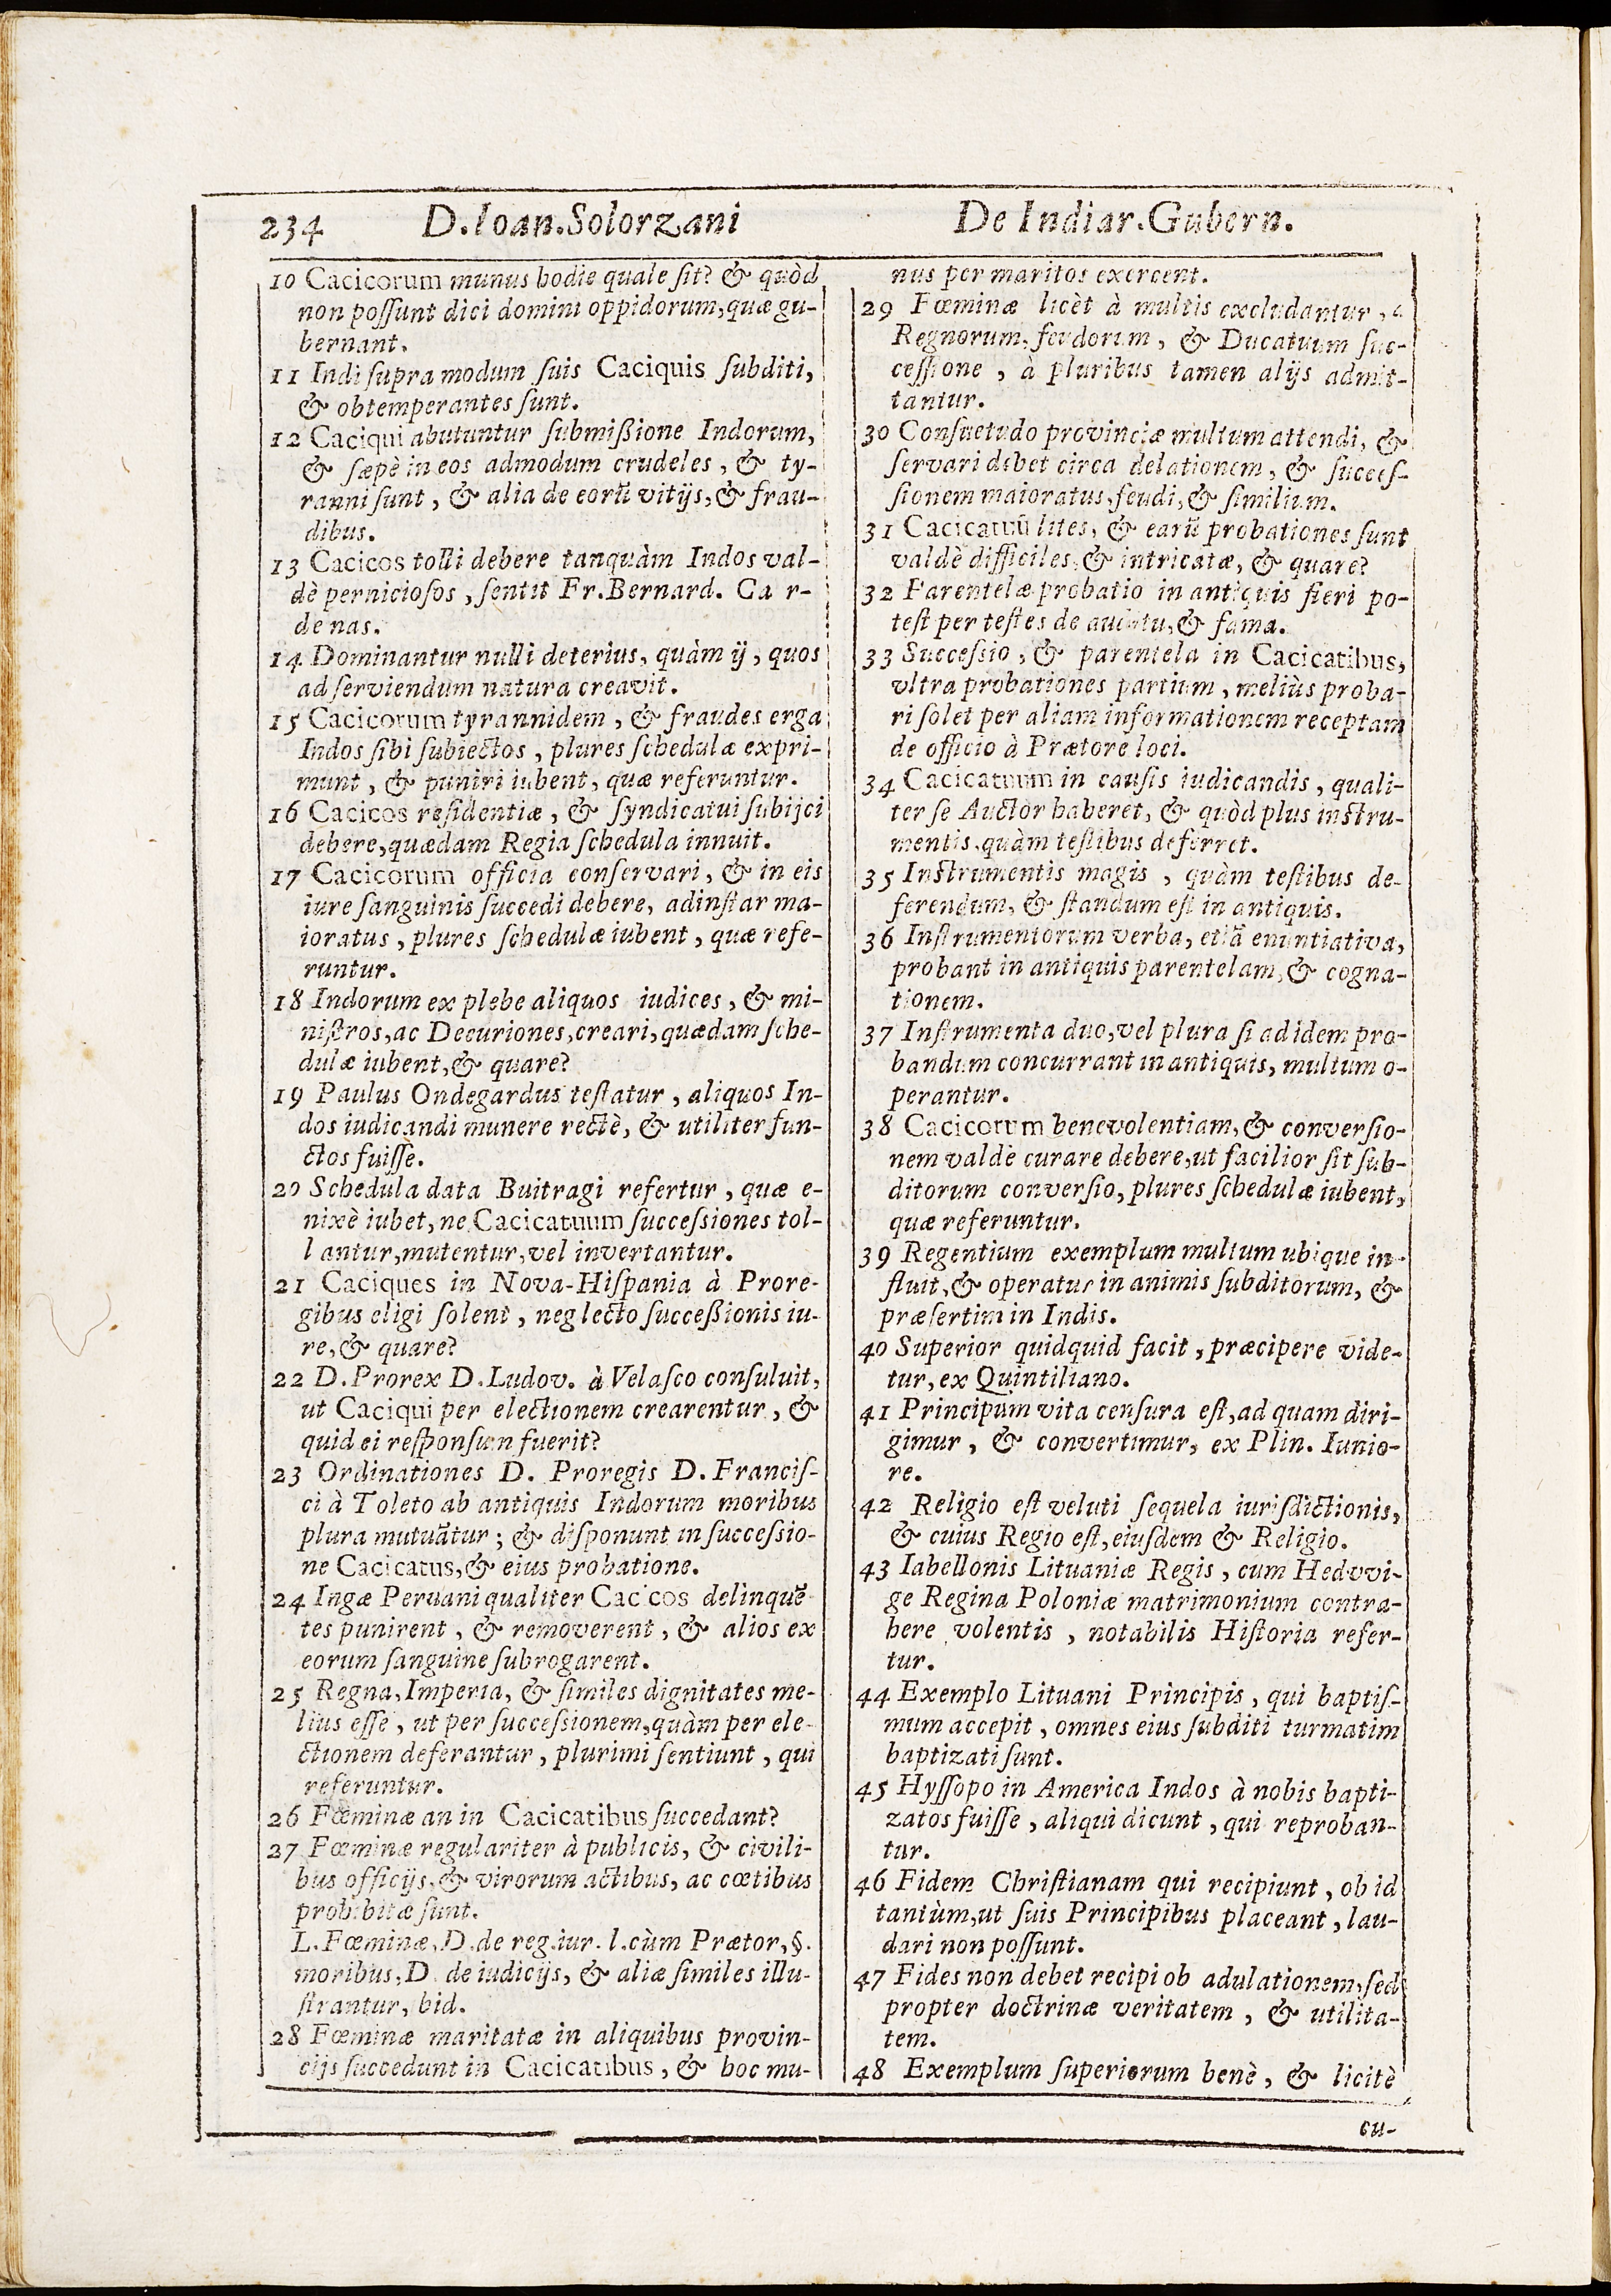 234 D.Ioan.Solorzani De Indiar.Gubern.
10 Cacicorum munus hodie quale ſit? & quòd
non poſſunt dici domini oppidorum,quæ gu-
bernant.
11 Indi ſupra modum ſuis Caciquis ſubditi,
& obtemperantes ſunt.
12 Caciqui abutuntur ſubmißione Indorum,
& ſæpè in eos admodum crudeles, & ty-
ranni ſunt, & alia de eorũ vitijs,& frau-
dibus.
13 Cacicos tolli debere tanquàm Indos val-
dè pernicioſos, ſentit Fr.Bernard. Ca r-
de nas.
14 Dominantur nulli deterius, quàm ij, quos
ad ſerviendum natura creavit.
15 Cacicorum tyrannidem, & fraudes erga
Indos ſibi ſubiectos, plures ſchedulæ expri-
munt, & puniri iubent, quæ referuntur.
16 Cacicos reſidentiæ, & ſyndicatui ſubijci
debere,quædam Regia ſchedula innuit.
17 Cacicorum officia conſervari, & in eis
iure ſanguinis ſuccedi debere, adinſtar ma-
ioratus, plures ſchedulæ iubent, quæ refe-
runtur.
18 Indorum ex plebe aliquos iudices, & mi-
niſtros,ac Decuriones,creari,quædam ſche-
dulæ iubent,& quare?
19 Paulus Ondegardus teſtatur, aliquos In-
dos iudicandi munere rectè, & utiliter fun-
ctos fuiſſe.
20 Schedula data Buitragi refertur, quæ e-
nixè iubet,ne Cacicatuum ſucceſsiones tol-
l antur,mutentur,vel invertantur.
21 Caciques in Nova-Hiſpania à Prore-
gibus eligi ſolent, neglecto ſucceßionis iu-
re,& quare?
22 D.Prorex D.Ludov. à Velaſco conſuluit,
ut Caciqui per electionem crearentur, &
quid ei reſponſum fuerit?
23 Ordinationes D. Proregis D.Franciſ-
ci à Toleto ab antiquis Indorum moribus
plura mutuãtur; & diſponunt in ſucceſsio-
ne Cacicatus,& eius probatione.
24 Ingæ Peruani qualiter Cacicos delinquẽ
tes punirent, & removerent, & alios ex
eorum ſanguine ſubrogarent.
25 Regna,Imperia, & ſimiles dignitates me-
lius eſſe, ut per ſucceſsionem,quàm per ele-
ctionem deferantur, plurimi ſentiunt, qui
referuntur.
26 Fœminæ an in Cacicatibus ſuccedant?
27 Fœminæ regulariter à publicis, & civili-
bus officijs,& virorum actibus, ac cœtibus
prohibitæ ſunt.
L.Fœminæ,D.de reg.iur. l.cùm Prætor,§.
moribus,D. de iudicijs, & aliæ ſimiles illu-
ſtrantur, bid.
28 Fœminæ maritatæ in aliquibus provin-
cijs ſuccedunt in Cacicatibus, & hoc mu-
nus per maritos exercent.
29 Fœminæ licèt à multis excludantur, a
Regnorum, feudorum, & Ducatuum ſuc-
ceſſione, à pluribus tamen alijs admit-
tantur.
30 Conſuetudo provinciæ multum attendi, &
ſervari debet circa delationem, & succeſ-
sionem maioratus,feudi,& ſimilium.
31 Cacicatuũ lites, & earũ probationes ſunt
valdè difficiles,& intricatæ, & quare?
32 Parentelæ probatio in antiquis fieri po-
teſt per teſtes de auditu,& fama.
33 Succeſsio, & parentela in Cacicatibus,
vltra probationes partium, meliùs proba-
ri ſolet per aliam informationem receptam
de officio à Prætore loci.
34 Cacicatuum in cauſis iudicandis, quali-
ter ſe Auctor haberet, & quòd plus inſtru-
mentis,quàm teſtibus deferret.
35 Inſtrumentis magis, quàm teſtibus de-
ferendum, & ſtandum eſt in antiquis.
36 Inſtrumentorum verba, etiã enuntiativa,
probant in antiquis parentelam,& cogna-
tionem.
37 Inſtrumenta duo,vel plura ſi ad idem pro-
bandum concurrant in antiquis, multum o-
perantur.
38 Cacicorum benevolentiam,& converſio-
nem valdè curare debere,ut facilior ſit ſub-
ditorum converſio,plures ſchedulæ iubent,
quæ referuntur.
39 Regentium exemplum multum ubique in-
fluit,& operatur in animis ſubditorum, &
præſertim in Indis.
40 Superior quidquid facit, præcipere vide-
tur,ex Quintiliano.
41 Principum vita cenſura eſt,ad quam diri-
gimur, & convertimur, ex Plin. Iunio-
re.
42 Religio eſt veluti ſequela iuriſdictionis,
& cuius Regio eſt,eiuſdem & Religio.
43 Iabellonis Lituaniæ Regis, cum Hedvvi-
ge Regina Poloniæ matrimonium contra-
here volentis, notabilis Hiſtoria refer-
tur.
44 Exemplo Lituani Principis, qui baptiſ-
mum accepit, omnes eius ſubditi turmatim
baptizati ſunt.
45 Hyſſopo in America Indos à nobis bapti-
zatos fuiſſe, aliqui dicunt, qui reproban-
tur.
46 Fidem Chriſtianam qui recipiunt, ob id
tantùm,ut ſuis Principibus placeant, lau-
dari non poſſunt.
47 Fides non debet recipi ob adulationem,ſed
propter doctrinæ veritatem, & utilita-
tem.
48 Exemplum ſuperiorum benè, & licitè
cu-